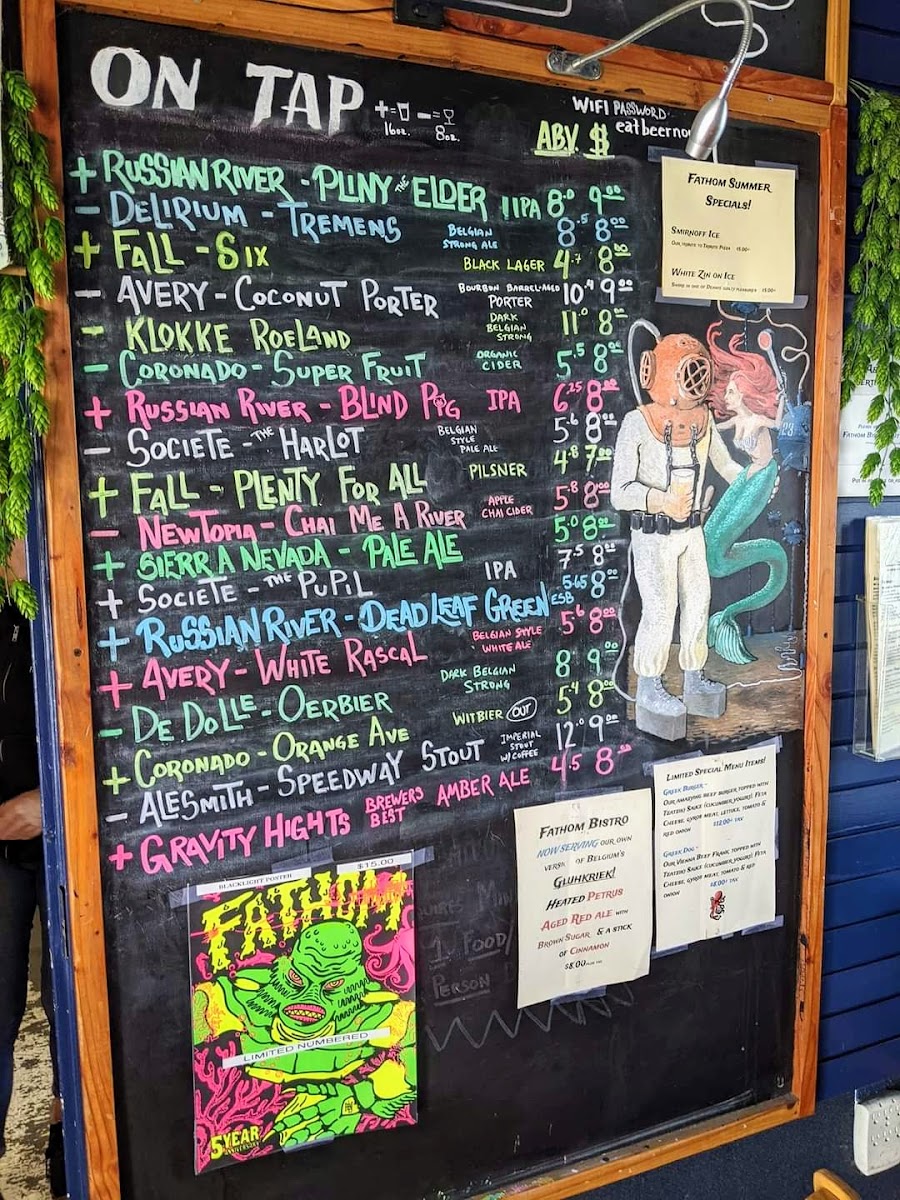 ON TAP
+= -=
16oz. 8oz.
WIFI PASSWORD
eatbeerno
ABV. $
+ RUSSIAN RIVER - PLINY THE ELDER IIPA 8.0 9.00
- DELIRIUM - TREMENS BELGIAN STRONG ALE 8.5 8.00
+ FALL - SIX BLACK LAGER 4.7 8.00
- AVERY - COCONUT PORTER BOURBON BARREL-AGED PORTER 10.4 9.00
- KLOKKE ROELAND DARK BELGIAN STRONG 11.0 8.00
- CORONADO - SUPER FRUIT ORGANIC CIDER 5.5 8.00
+ RUSSIAN RIVER - BLIND PIG IPA 6.25 8.00
- SOCIETE - THE HARLOT BELGIAN STYLE PALE ALE 5.6 8.00
+ FALL - PLENTY FOR ALL PILSNER 4.8 7.00
- NEWTOPIA - CHAI ME A RIVER APPLE CHAI CIDER 5.8 8.00
+ SIERRA NEVADA - PALE ALE 5.0 8.00
+ SOCIETE - THE PUPIL IPA 7.5 8.00
+ RUSSIAN RIVER - DEAD LEAF GREEN ESB 5.65 8.00
+ AVERY - WHITE RASCAL BELGIAN STYLE WHITE ALE 5.6 8.00
- DE DOLLE - OERBIER DARK BELGIAN STRONG 8.0 9.00
+ CORONADO - ORANGE AVE WITBIER OUT 5.4 8.00
- ALESMITH - SPEEDWAY STOUT IMPERIAL STOUT W/COFFEE 12.0 9.00
+ GRAVITY HIGHTS BREWERS BEST AMBER ALE 4.5 8.00
FATHOM SUMMER
SPECIALS!
SMIRNOFF ICE
WHITE ZIN ON ICE
LIMITED SPECIAL MENU ITEMS!
GREEK BURGER -
OUR AMAZING BEEF BURGER TOPPED WITH
TZATZIKI SAUCE (CUCUMBER, YOGURT), FETA
CHEESE, GYROS MEAT, LETTUCE, TOMATO &
RED ONION $12.00+ TAX
GREEK DOG -
OUR VIENNA BEEF FRANK TOPPED WITH
TZATZIKI SAUCE (CUCUMBER, YOGURT), FETA
CHEESE, GYROS MEAT, TOMATO & RED
ONION $8.00+ TAX
FATHOM BISTRO
NOW SERVING OUR OWN
VERSI OF BELGIUM'S
GLUHKRIEK!
HEATED PETRUS
AGED RED ALE WITH
BROWN SUGAR & A STICK
OF CINNAMON
$8.00 PLUS TAX
1 FOOD/
PERSON
BLACKLIGHT POSTER $15.00
FATHOM
LIMITED NUMBERED
5 YEAR
ANNIVERSARY